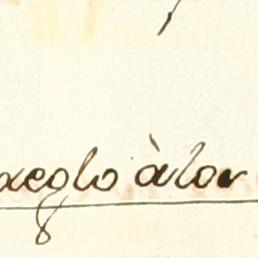 aeglo àlor